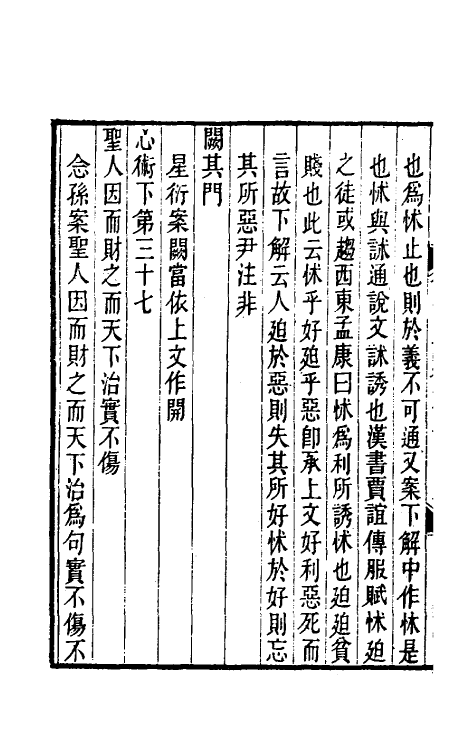 也爲怵止也則於義不可通又案下解中作怵是
也怵與訹通說文訹誘也漢書賈誼傳服賦怵迫
之徒或趨西東孟康曰怵爲利所誘怵也迫迫貧
賤也此云怵乎好迫乎惡卽承上文好利惡死而
言故下解云人迫於惡則失其所好怵於好則忘
其所惡尹注非
闕其門
星衍案闕當依上文作開
心術下第三十七
聖人因而財之而天下治實不傷
念孫案聖人因而財之而天下治爲句實不傷不